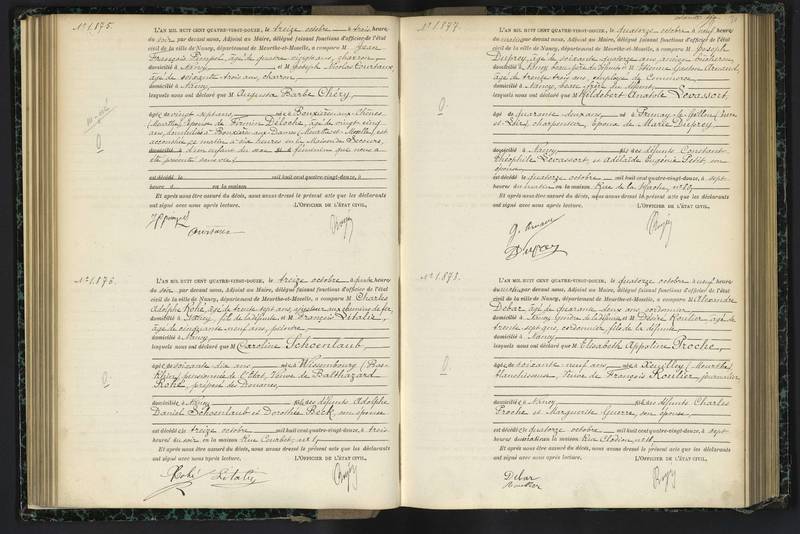 N° 1.875.
L'AN MIL HUIT CENT QUATRE-VINGT-DOUZE, le treize octobre à trois heures
du soir par devant nous, Adjoint au Maire, délégué faisant fonctions d'officier de l'état
civil de la ville de Nancy, département de Meurthe-et-Moselle, a comparu M Jean
François, âgé de quatre, charron,
domicilié à Nancy et M Joseph Nicolas
âgé de soixante trois ans, charron,
domicilié à Nancy,
lesquels nous ont déclaré que M Augusta Barbe Chéry,
âgée de vingt sept ans née à Bouxières aux Chênes
(Meurthe), épouse de Firmin Deloche, âgé de vingt cinq
ans, domiciliés à Bouxières aux Dames (Meurthe et Moselle), est
accouchée ce matin à six heures en la Maison de Secours,
d'un enfant du sexe féminin que nous a
été présenté sans vie.
est décédé le mil huit cent quatre-vingt-douze, à
heure d en la maison
Et après nous être assuré du décès, nous avons dressé le présent acte que les déclarants
ont signé avec nous après lecture. L'OFFICIER DE L'ÉTAT CIVIL,
N° 1.876.
L'AN MIL HUIT CENT QUATRE-VINGT-DOUZE, le treize octobre à quatre heures
du soir par devant nous, Adjoint au Maire, délégué faisant fonctions d'officier de l'état
civil de la ville de Nancy, département de Meurthe-et-Moselle, a comparu M Charles
Adolphe Rohé, âgé de trente sept ans, aux chemins de fer,
domicilié à Nancy, fils de la défunte et M François Létalié,
âgé de cinquante neuf ans, peintre,
domicilié à Nancy,
lesquels nous ont déclaré que M Caroline Schoenlaub,
âgée de soixante dix ans née à Wissembourg (Bas-
Rhin) pensionnée de l'État, Veuve de Balthazard
Rohé, préposé des Douanes,
domiciliée à Nancy fille des défunts Adolphe
Daniel Schoenlaub et Dorothée Beck, son épouse
est décédée le treize octobre mil huit cent quatre-vingt-douze, à trois
heures du soir en la maison Rue Courbet, n° 1,
Et après nous être assuré du décès, nous avons dressé le présent acte que les déclarants
ont signé avec nous après lecture. L'OFFICIER DE L'ÉTAT CIVIL,
Rohé Létalié
N° 1.877.
L'AN MIL HUIT CENT QUATRE-VINGT-DOUZE, le quatorze octobre à neuf heures
du matin par devant nous, Adjoint au Maire, délégué faisant fonctions d'officier de l'état
civil de la ville de Nancy, département de Meurthe-et-Moselle, a comparu M Joseph
Duprey, âgé de soixante quatorze ans, ancien
domicilié à Nancy, beau père du défunt et M Gaston Arnaud,
âgé de trente trois ans, employé de Commerce
domicilié à Nancy, beau frère du défunt
lesquels nous ont déclaré que M Hildebert Anatole Levassort,
âgé de quarante deux ans né à Fresnay-le-Gilmert (Eure
et Loir), charpentier, époux de Marie Duprey,
domicilié à Nancy fils des défunts Constant
Théophile Levassort, et Adélaïde Eugénie Petit, son
épouse
est décédé le quatorze octobre mil huit cent quatre-vingt-douze, à sept
heures du matin en la maison Rue de la Hache, n° 59,
Et après nous être assuré du décès, nous avons dressé le présent acte que les déclarants
ont signé avec nous après lecture. L'OFFICIER DE L'ÉTAT CIVIL,
G. Arnaud
Duprey
N° 1.878.
L'AN MIL HUIT CENT QUATRE-VINGT-DOUZE, le quatorze octobre à neuf heures
du matin par devant nous, Adjoint au Maire, délégué faisant fonctions d'officier de l'état
civil de la ville de Nancy, département de Meurthe-et-Moselle, a comparu M Alexandre
Debar, âgé de quarante deux ans, cordonnier
domicilié à Nancy, gendre de la défunte et M Désiré Roulier, âgé de
trente sept ans, cordonnier, fils de la défunte
domicilié à Nancy
lesquels nous ont déclaré que M Elisabeth Appoline Proche,
âgée de soixante neuf ans, née à Xeuilley (Meurthe),
blanchisseuse, Veuve de François Roulier, journalier
domiciliée à Nancy fille des défunts Charles
Proche et Marguerite Guerre, son épouse,
est décédée le quatorze octobre mil huit cent quatre-vingt-douze, à sept
heures du matin en la maison Rue Clodion, n° 11
Et après nous être assuré du décès, nous avons dressé le présent acte que les déclarants
ont signé avec nous après lecture. L'OFFICIER DE L'ÉTAT CIVIL,
Debar
Roulier